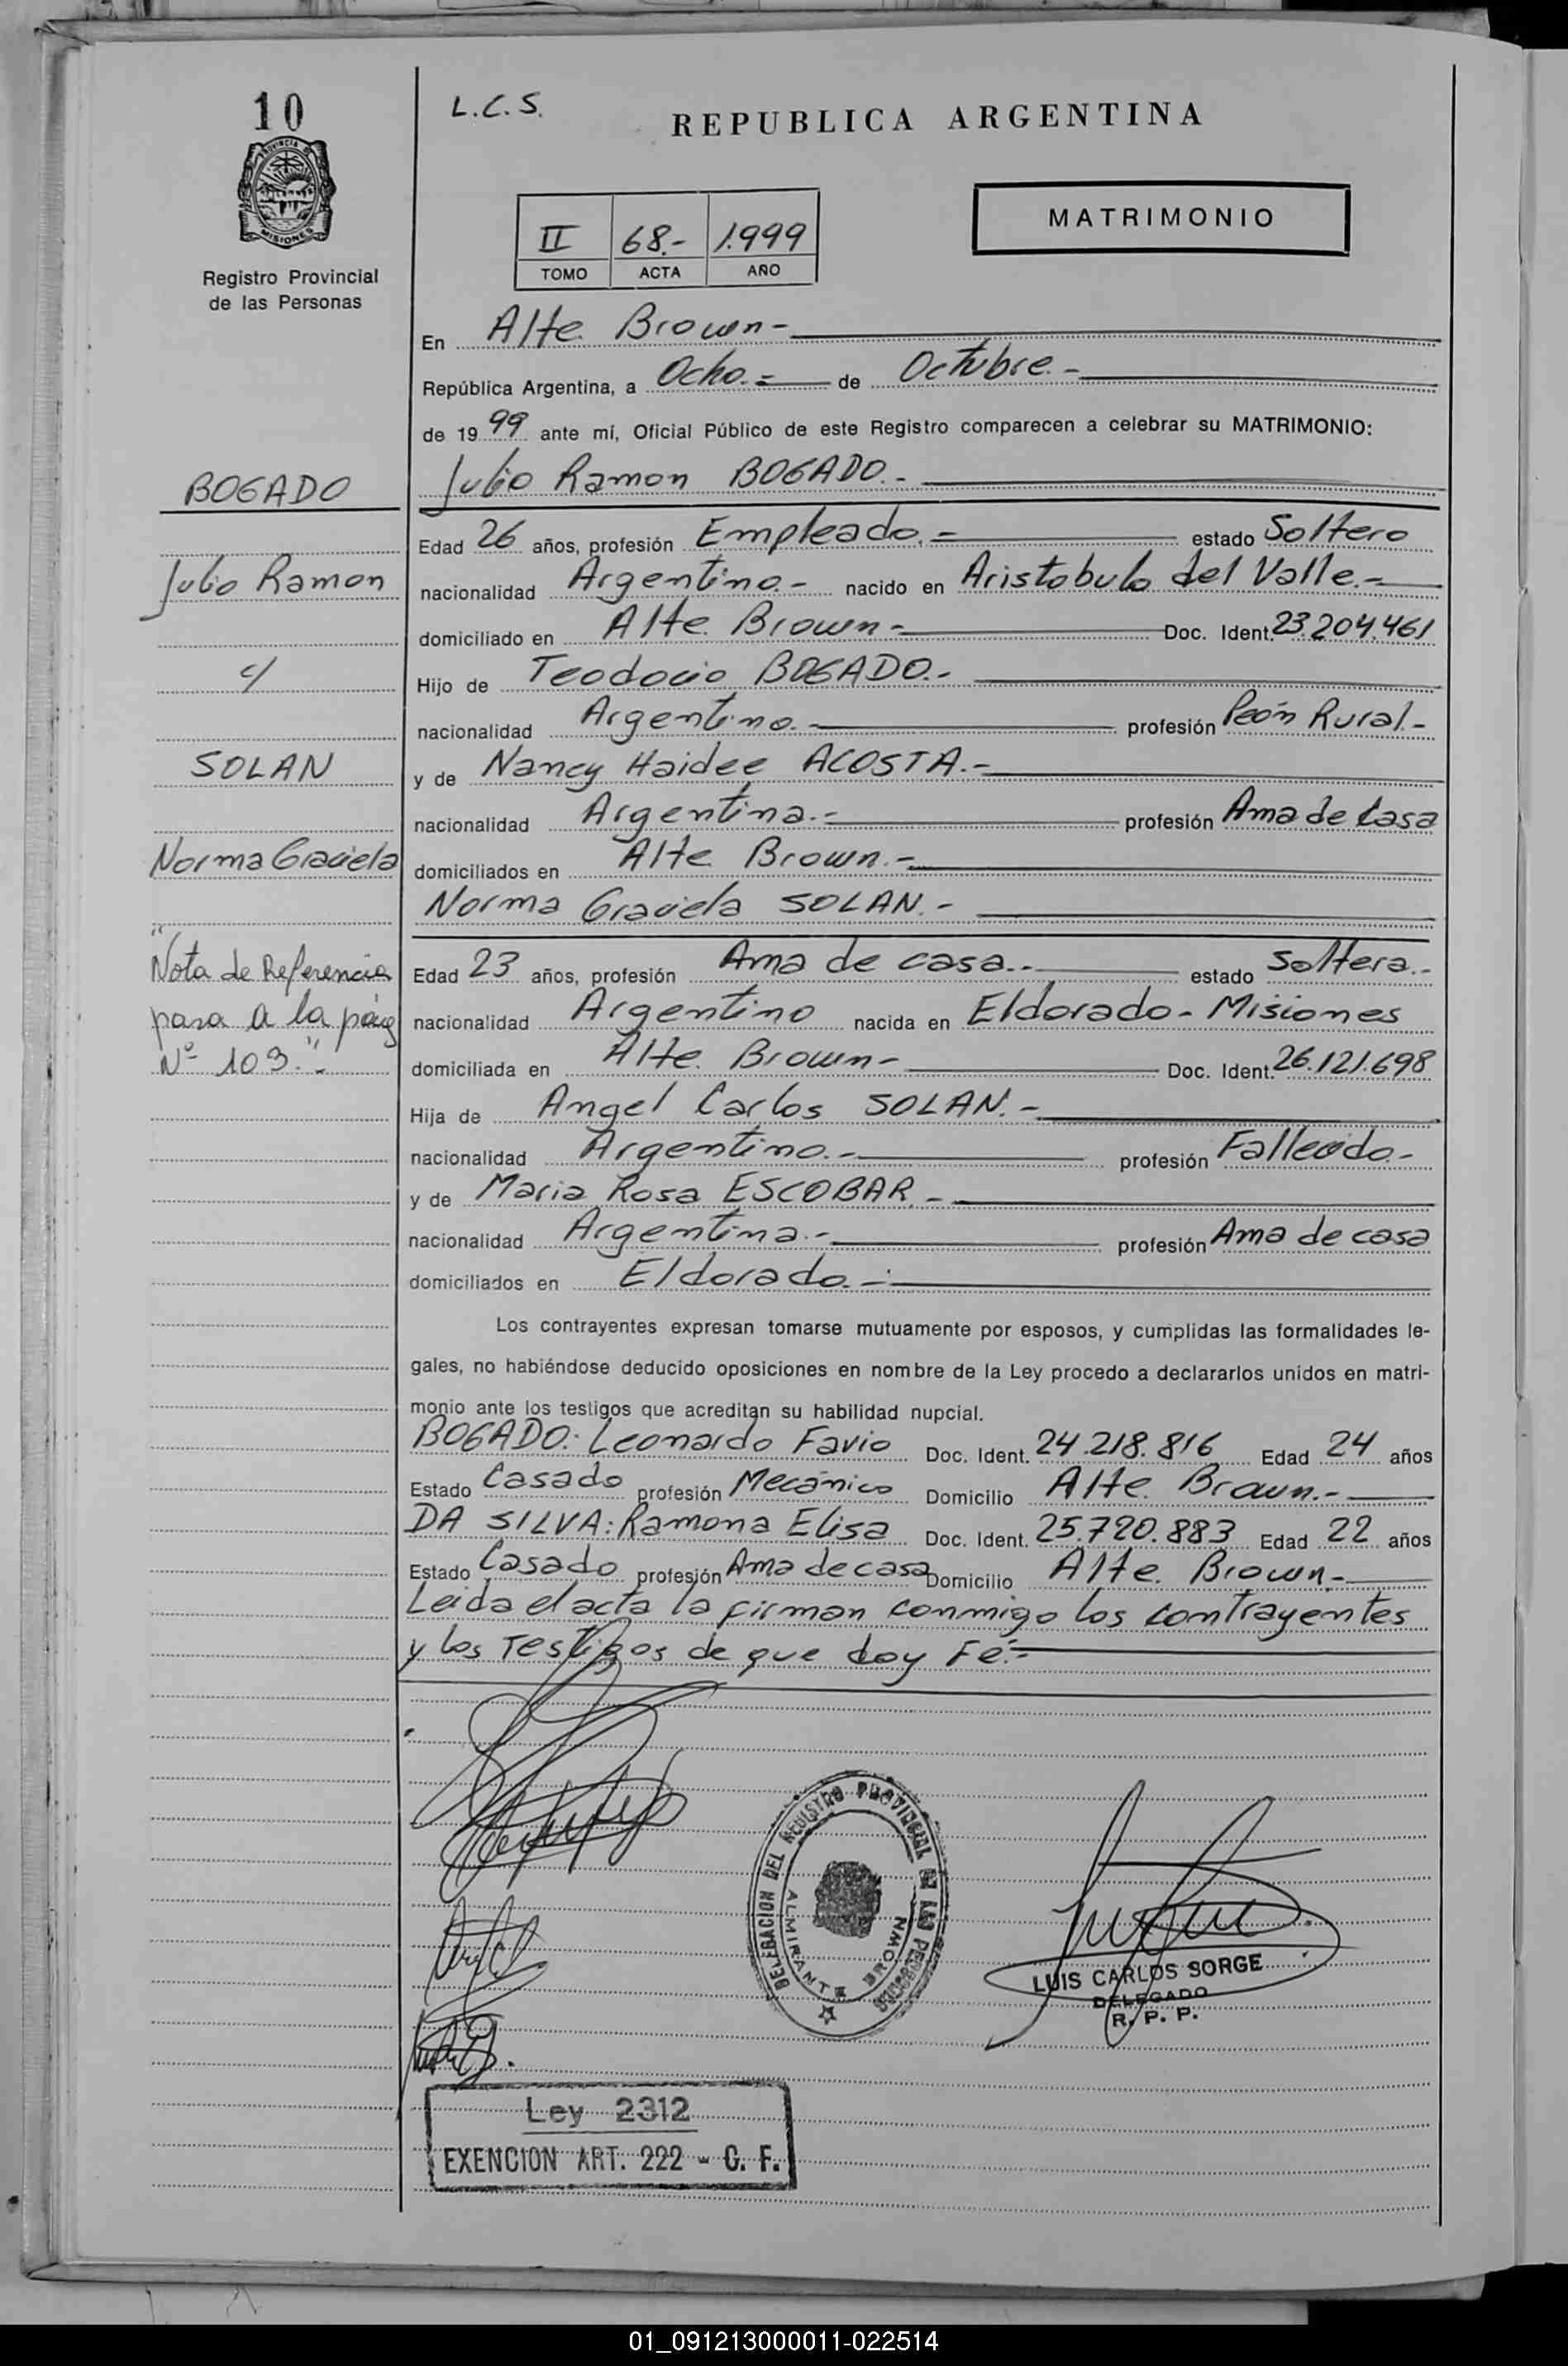 10
L.C.S.
REPUBLICA ARGENTINA
PROVINCIA DE
MISIONES
Registro Provincial
de las Personas
II 68.- 1.999
TOMO ACTA AÑO
MATRIMONIO
En Alte. Brown-
República Argentina, a Ocho.= de Octubre.-
de 1999 ante mí, Oficial Público de este Registro comparecen a celebrar su MATRIMONIO:
Julio Ramon BOGADO.-
Edad 26 años, profesión Empleado.= estado Soltero
nacionalidad Argentino.- nacido en Aristobulo del Valle.-
domiciliado en Alte. Brown- Doc. Ident. 23.204.461
Hijo de Teodocio BOGADO.-
nacionalidad Argentino.- profesión Peón Rural.-
y de Nancy Haidee ACOSTA.-
nacionalidad Argentina.- profesión Ama de Casa
domiciliados en Alte Brown.-
Norma Graciela SOLAN.-
Edad 23 años, profesión Ama de casa.- estado Soltera.-
nacionalidad Argentino nacida en Eldorado- Misiones
domiciliada en Alte. Brown- Doc. Ident. 26.121.698
Hija de Angel Carlos SOLAN.-
nacionalidad Argentino.- profesión Fallecido.-
y de Maria Rosa ESCOBAR.-
nacionalidad Argentina.- profesión Ama de casa
domiciliados en Eldorado.-
Los contrayentes expresan tomarse mutuamente por esposos, y cumplidas las formalidades le-
gales, no habiéndose deducido oposiciones en nombre de la Ley procedo a declararlos unidos en matri-
monio ante los testigos que acreditan su habilidad nupcial.
BOGADO: Leonardo Favio Doc. Ident. 24.218.816 Edad 24 años
Estado Casado profesión Mecánico Domicilio Alte. Brown.-
DA SILVA: Ramona Elisa Doc. Ident. 25.720.883 Edad 22 años
Estado Casado profesión Ama de casa Domicilio Alte. Brown.-
Leida el acta la firman conmigo los contrayentes
y los Testigos de que doy Fé.-
BOGADO
Julio Ramon
c/
SOLAN
Norma Graciela
"Nota de Referencia
pasa a la pág
Nº 103."-
DELEGACION DEL REGISTRO PROVINCIAL DE LAS PERSONAS
ALMIRANTE BROWN
LUIS CARLOS SORGE
DELEGADO
R. P. P.
Ley 2312
EXENCION ART. 222 - C. F.
01_091213000011-022514